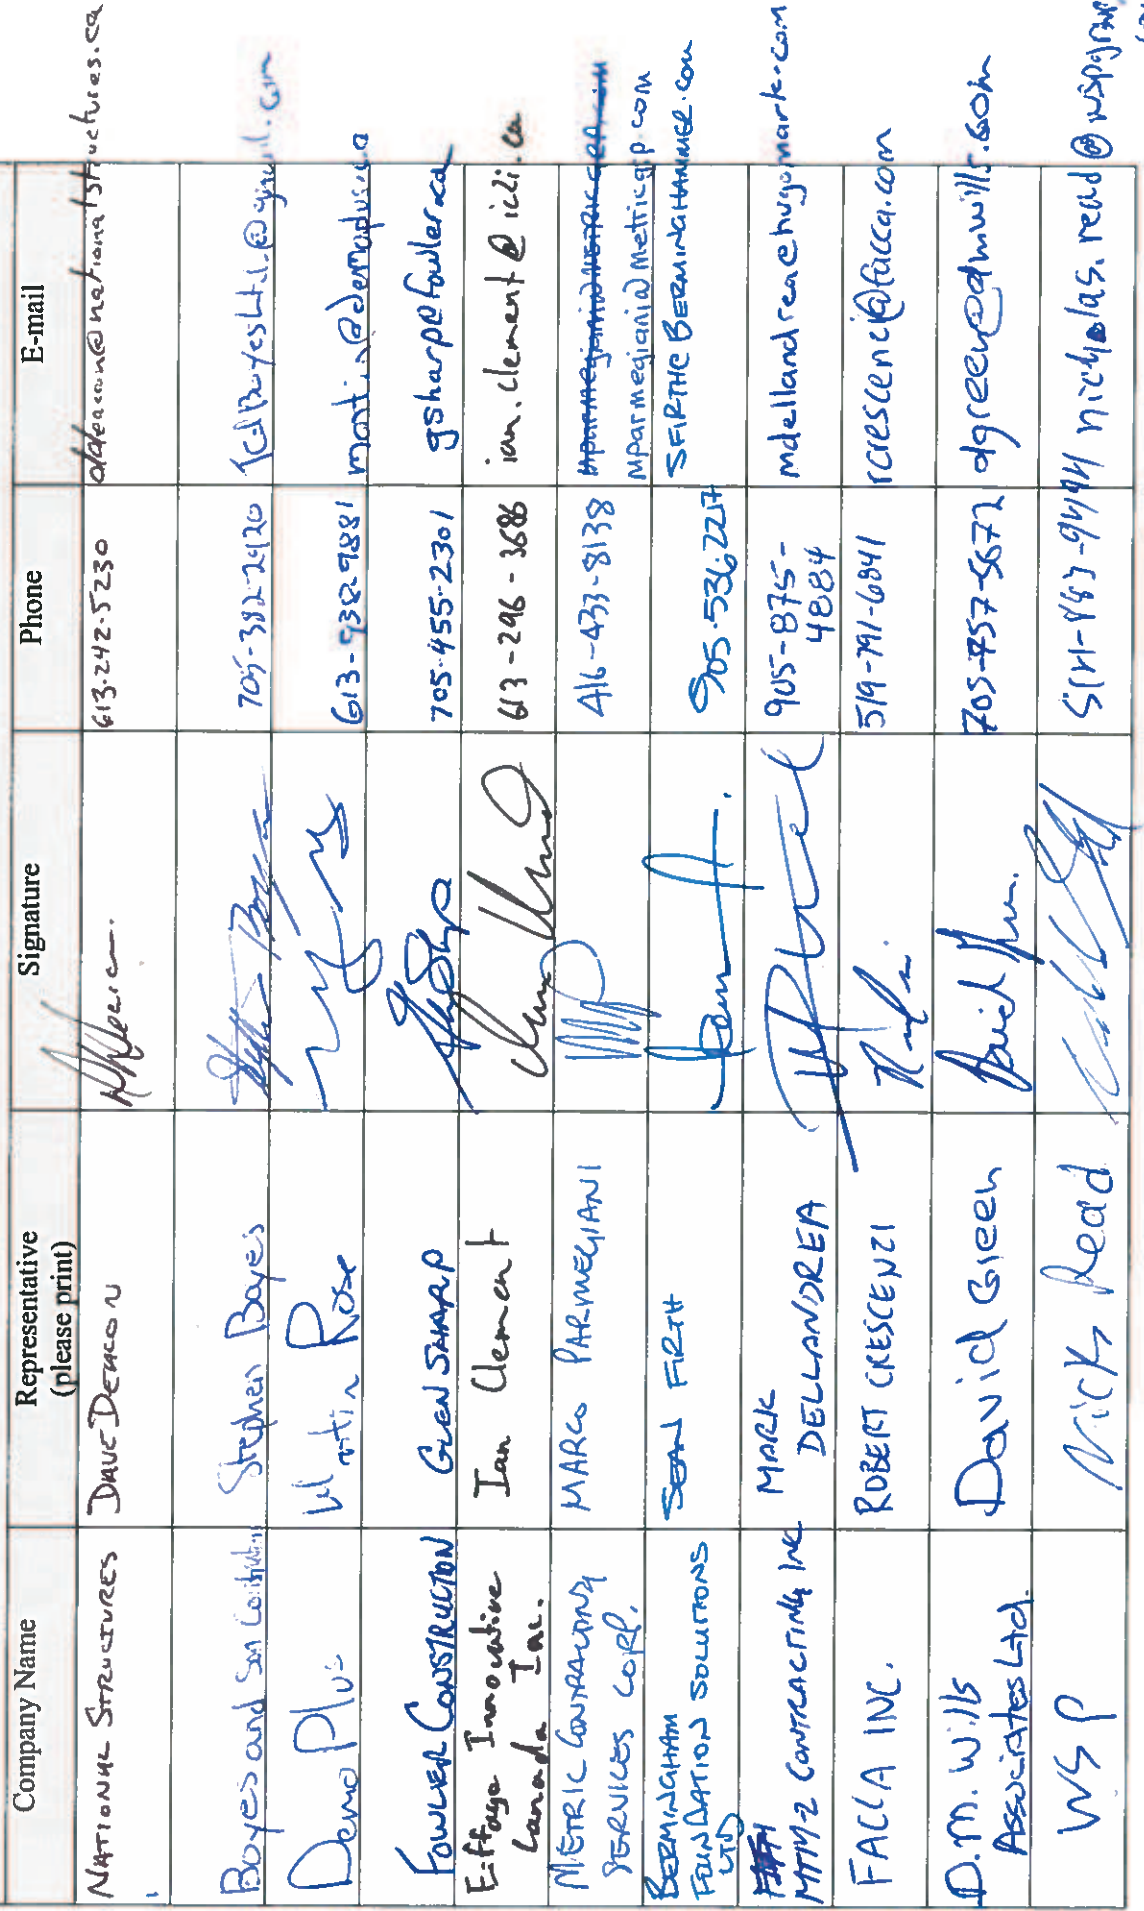 Company Name
Representative
(please print)
Signature
Phone
E-mail
NATIONAL STRUCTURES
DAVE DEACON
613.242.5230
ddeacon@nationalstructures.ca
Boyes and Son
Stephen Boyes
705-382-2420
Demo Plus
Martin Rose
613-938-9881
FOWLER CONSTRUCTION
GLEN SHARP
705-455-2301
gsharp@fowler.ca
Eiffage Innovative
Canada Inc.
Ian Clement
613-296-3686
ian.clement@icli.ca
METRIC CONTRACTING
SERVICES CORP.
MARCO PARMEGIANI
416-433-8138
mparmegiani@metricgsp.com
BERMINGHAM
FOUNDATION SOLUTIONS
LTD
SEAN FIRTH
905.536.2217
SFIRTH@BERMINGHAMMER.com
MTM-2 CONTRACTING INC
MARK
DELLANDREA
905-875-
4884
FACCA INC.
ROBERT CRESCENZI
519-791-6841
rcrescenzi@facca.com
D.M. Wills
Associates Ltd.
David Green
705-757-5672
dgreen@dmwills.com
WSP
Nick Read
nicholas.read@wspgroup